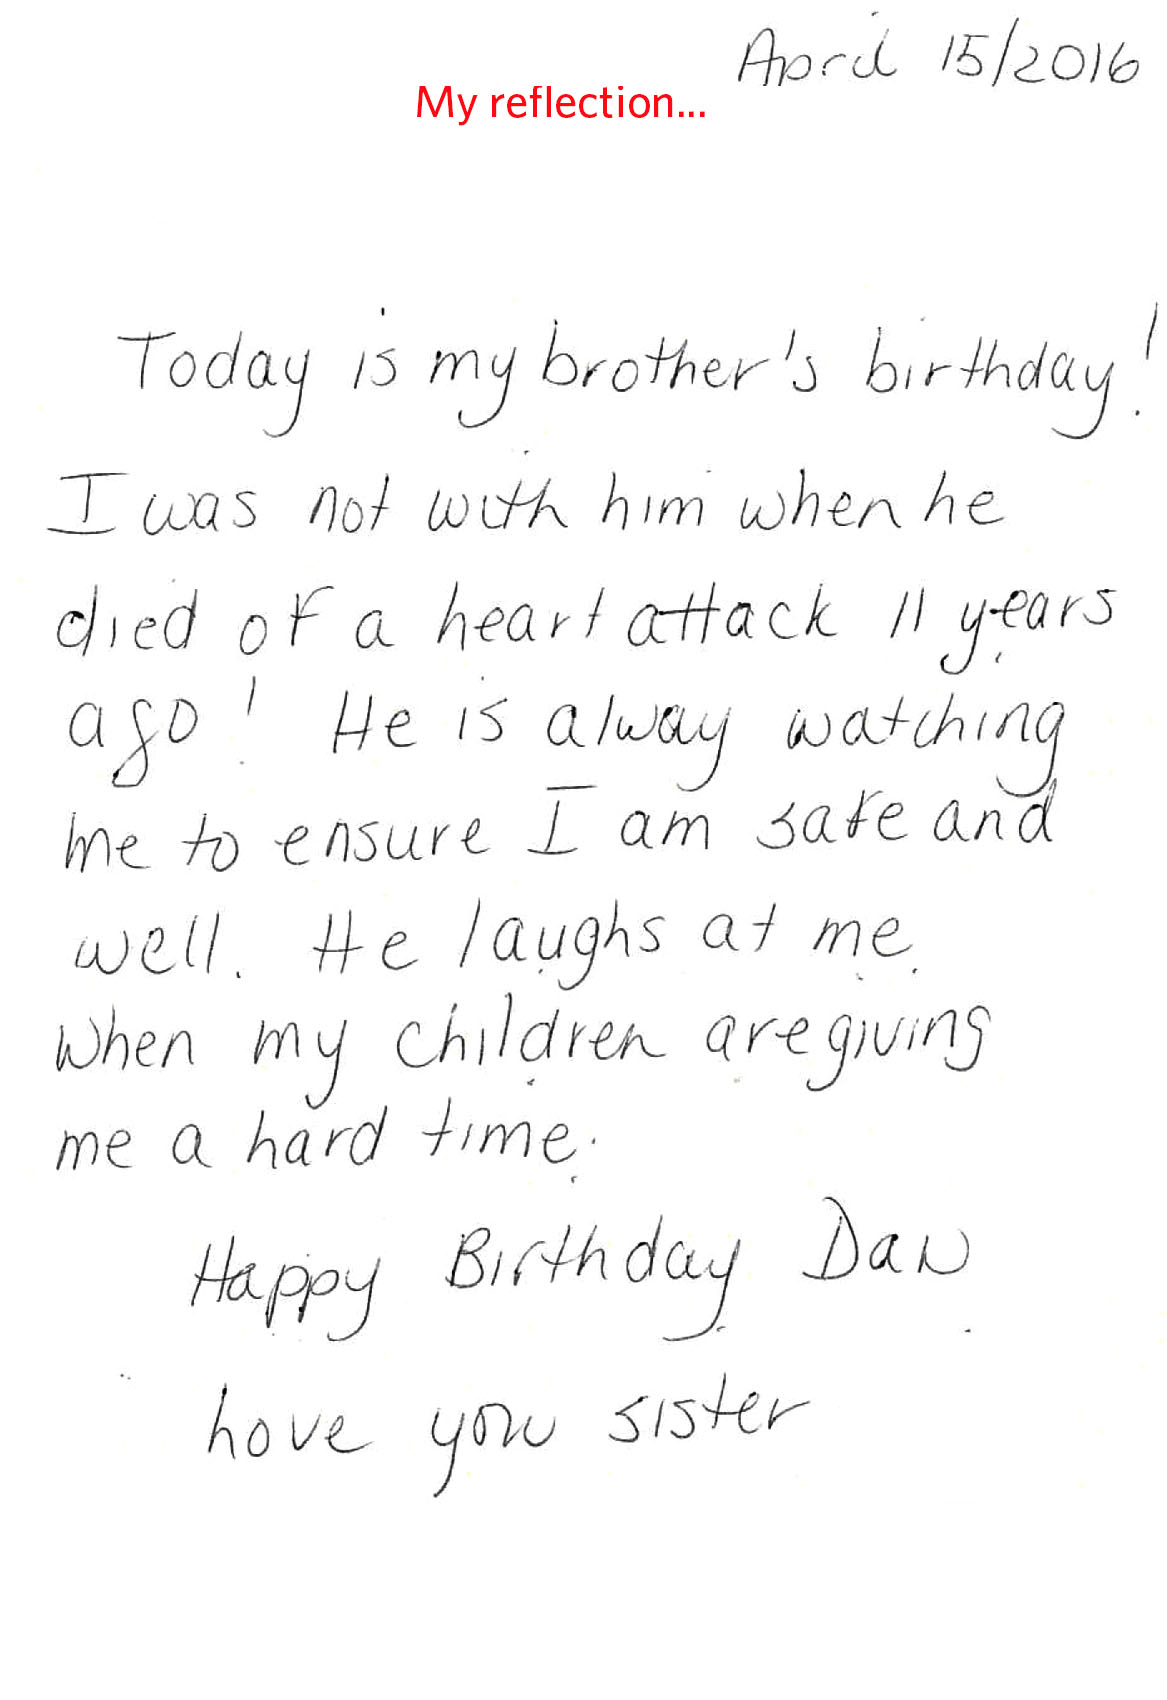 April 15/2016
My reflection...
Today is my brother's birthday!
I was not with him when he
died of a heart attack 11 years
ago! He is alway watching
me to ensure I am safe and
well. He laughs at me
when my children are giving
me a hard time.
Happy Birthday Dan
Love you sister